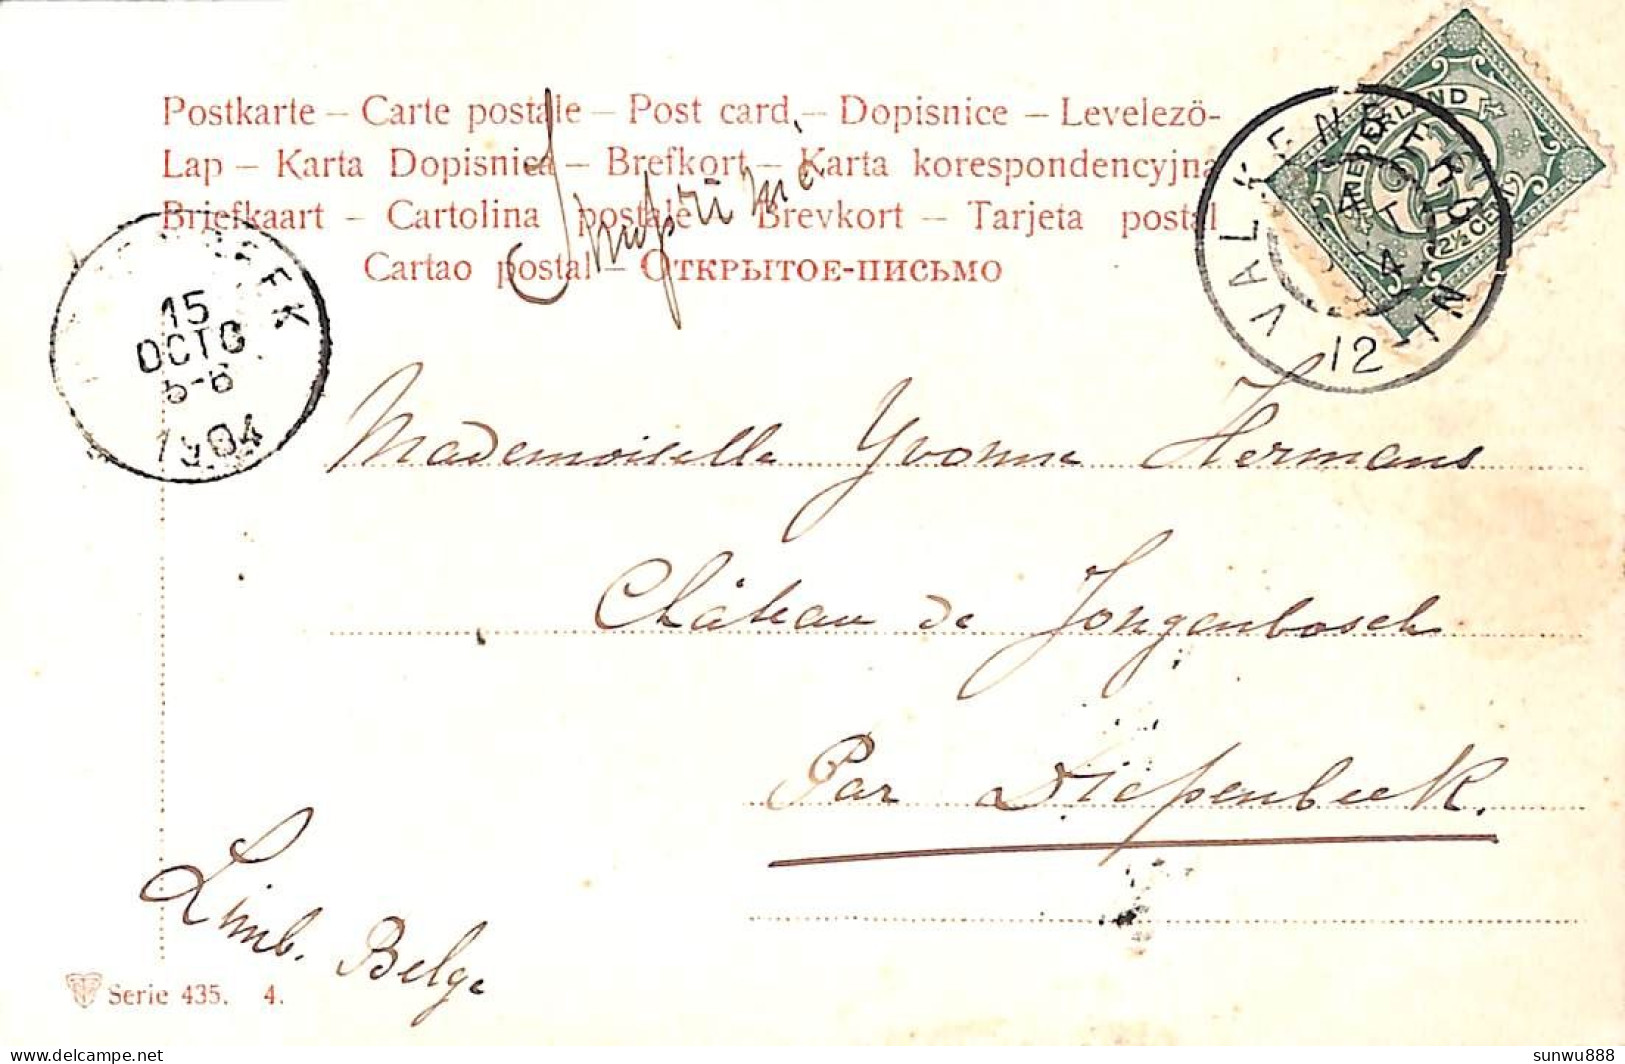 Postkarte – Carte postale – Post card – Dopisnice – Levelezö-
Lap – Karta Dopisnica – Brefkort – Karta korespondencyjna
Briefkaart – Cartolina postale – Brevkort – Tarjeta postal
Cartao postal – Открытое-письмо
NEDERLAND
2½
2½ CENT
VALKENBURG
4
12
-IN
15
OCTO
5-6
1904
Mademoiselle Yvonne Hermans
Château de Jongenbosch
Par Diepenbeek.
Limb. Belge
Serie 435. 4.
sunwu888